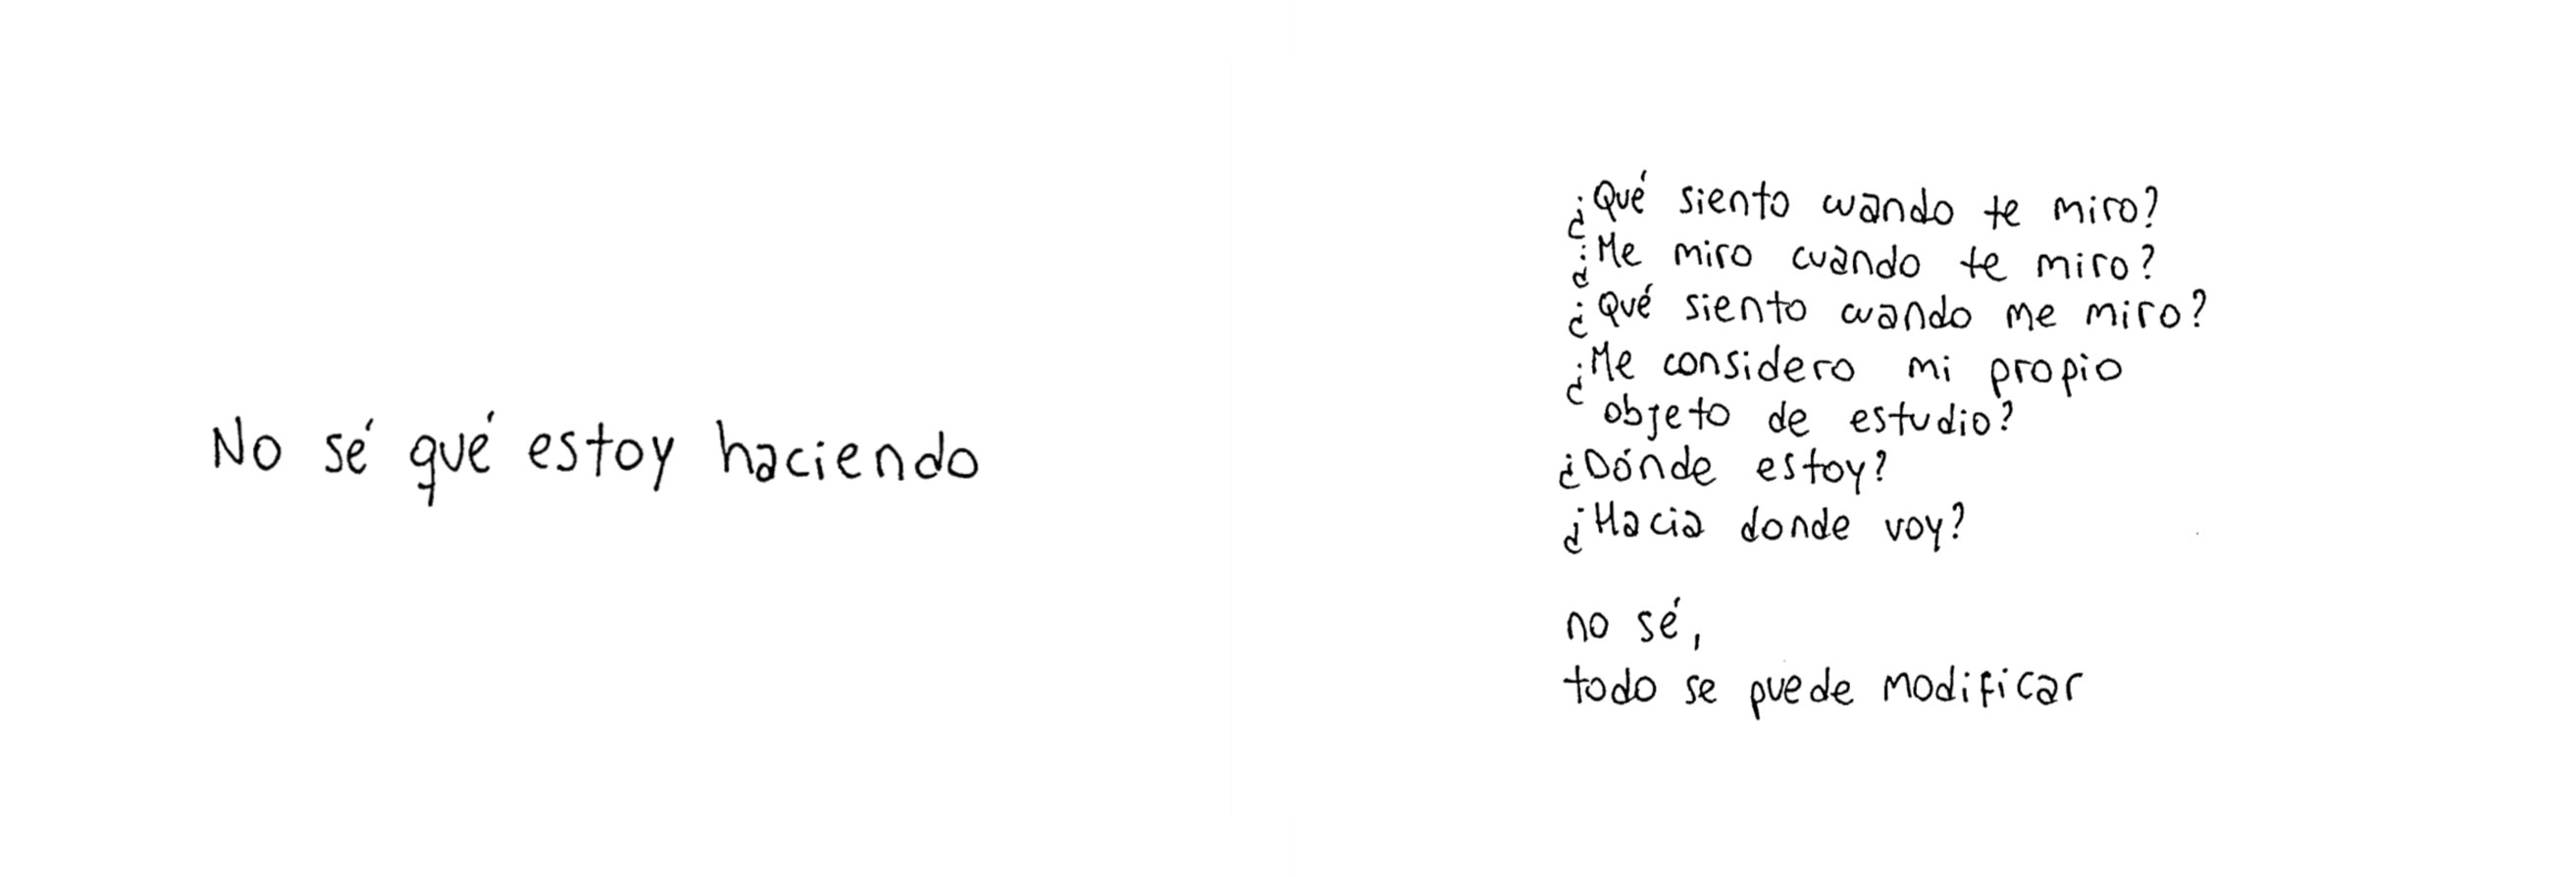 No sé qué estoy haciendo
¿Qué siento cuando te miro?
¿Me miro cuando te miro?
¿Qué siento cuando me miro?
¿Me considero mi propio
objeto de estudio?
¿Dónde estoy?
¿Hacia donde voy?
no sé,
todo se puede modificar